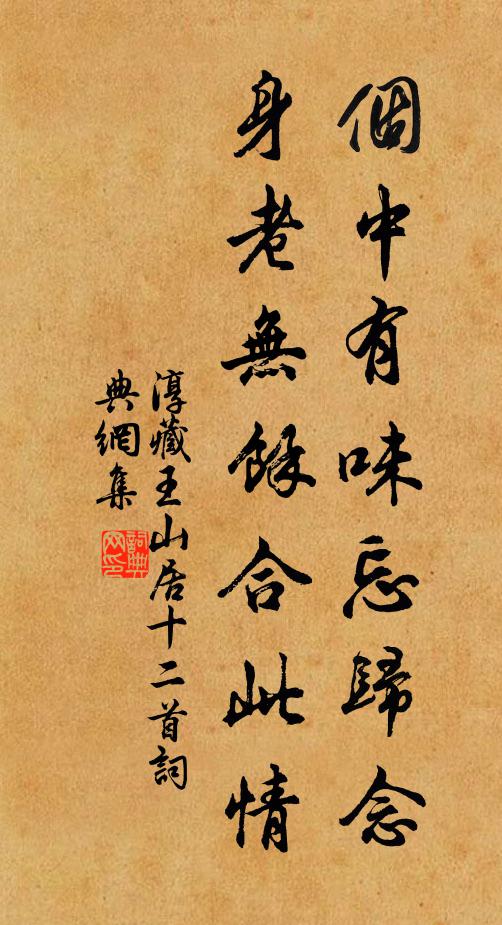 個中有味忘歸念
身老無餘合此情
淳藏王山居十二首詞
典網集
詞典網印